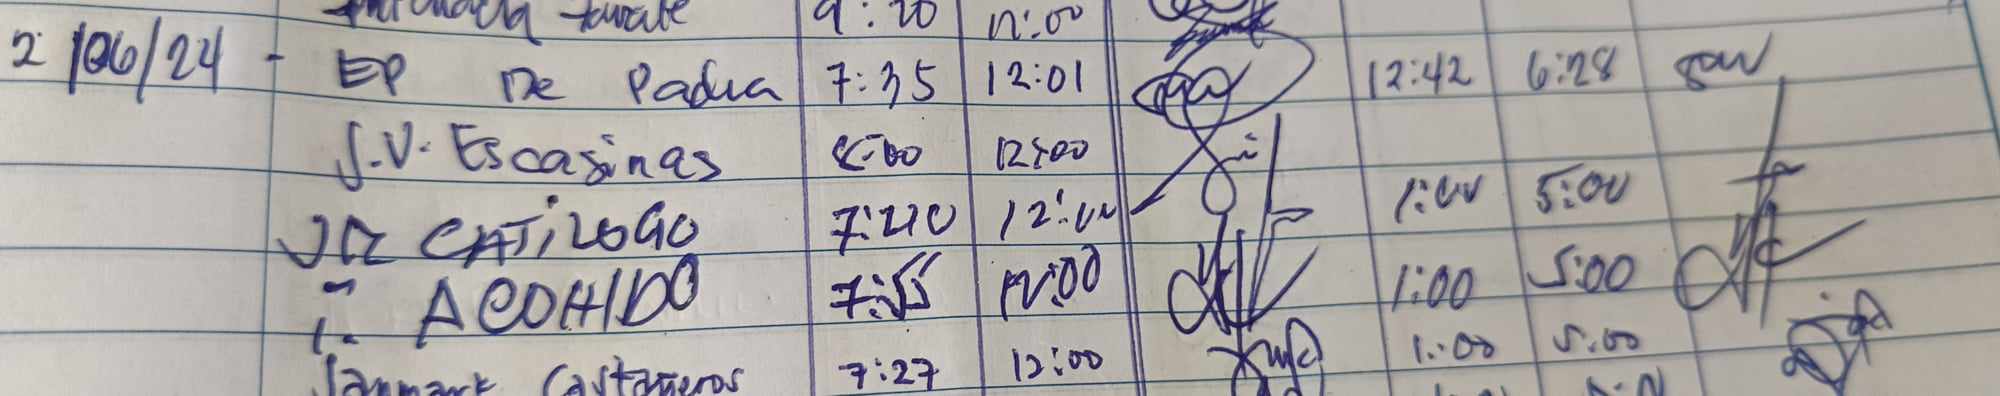 9:20 12:00
2/06/24 - EP De Padua 7:35 12:01 12:42 6:28
J.V. Escasinas 8:00 12:00
JR CATILOGO 7:40 12:00 1:00 5:00
" ACOHIDO 7:55 12:00 1:00 5:00
Janmark Castañeros 7:27 12:00 1:00 5:00